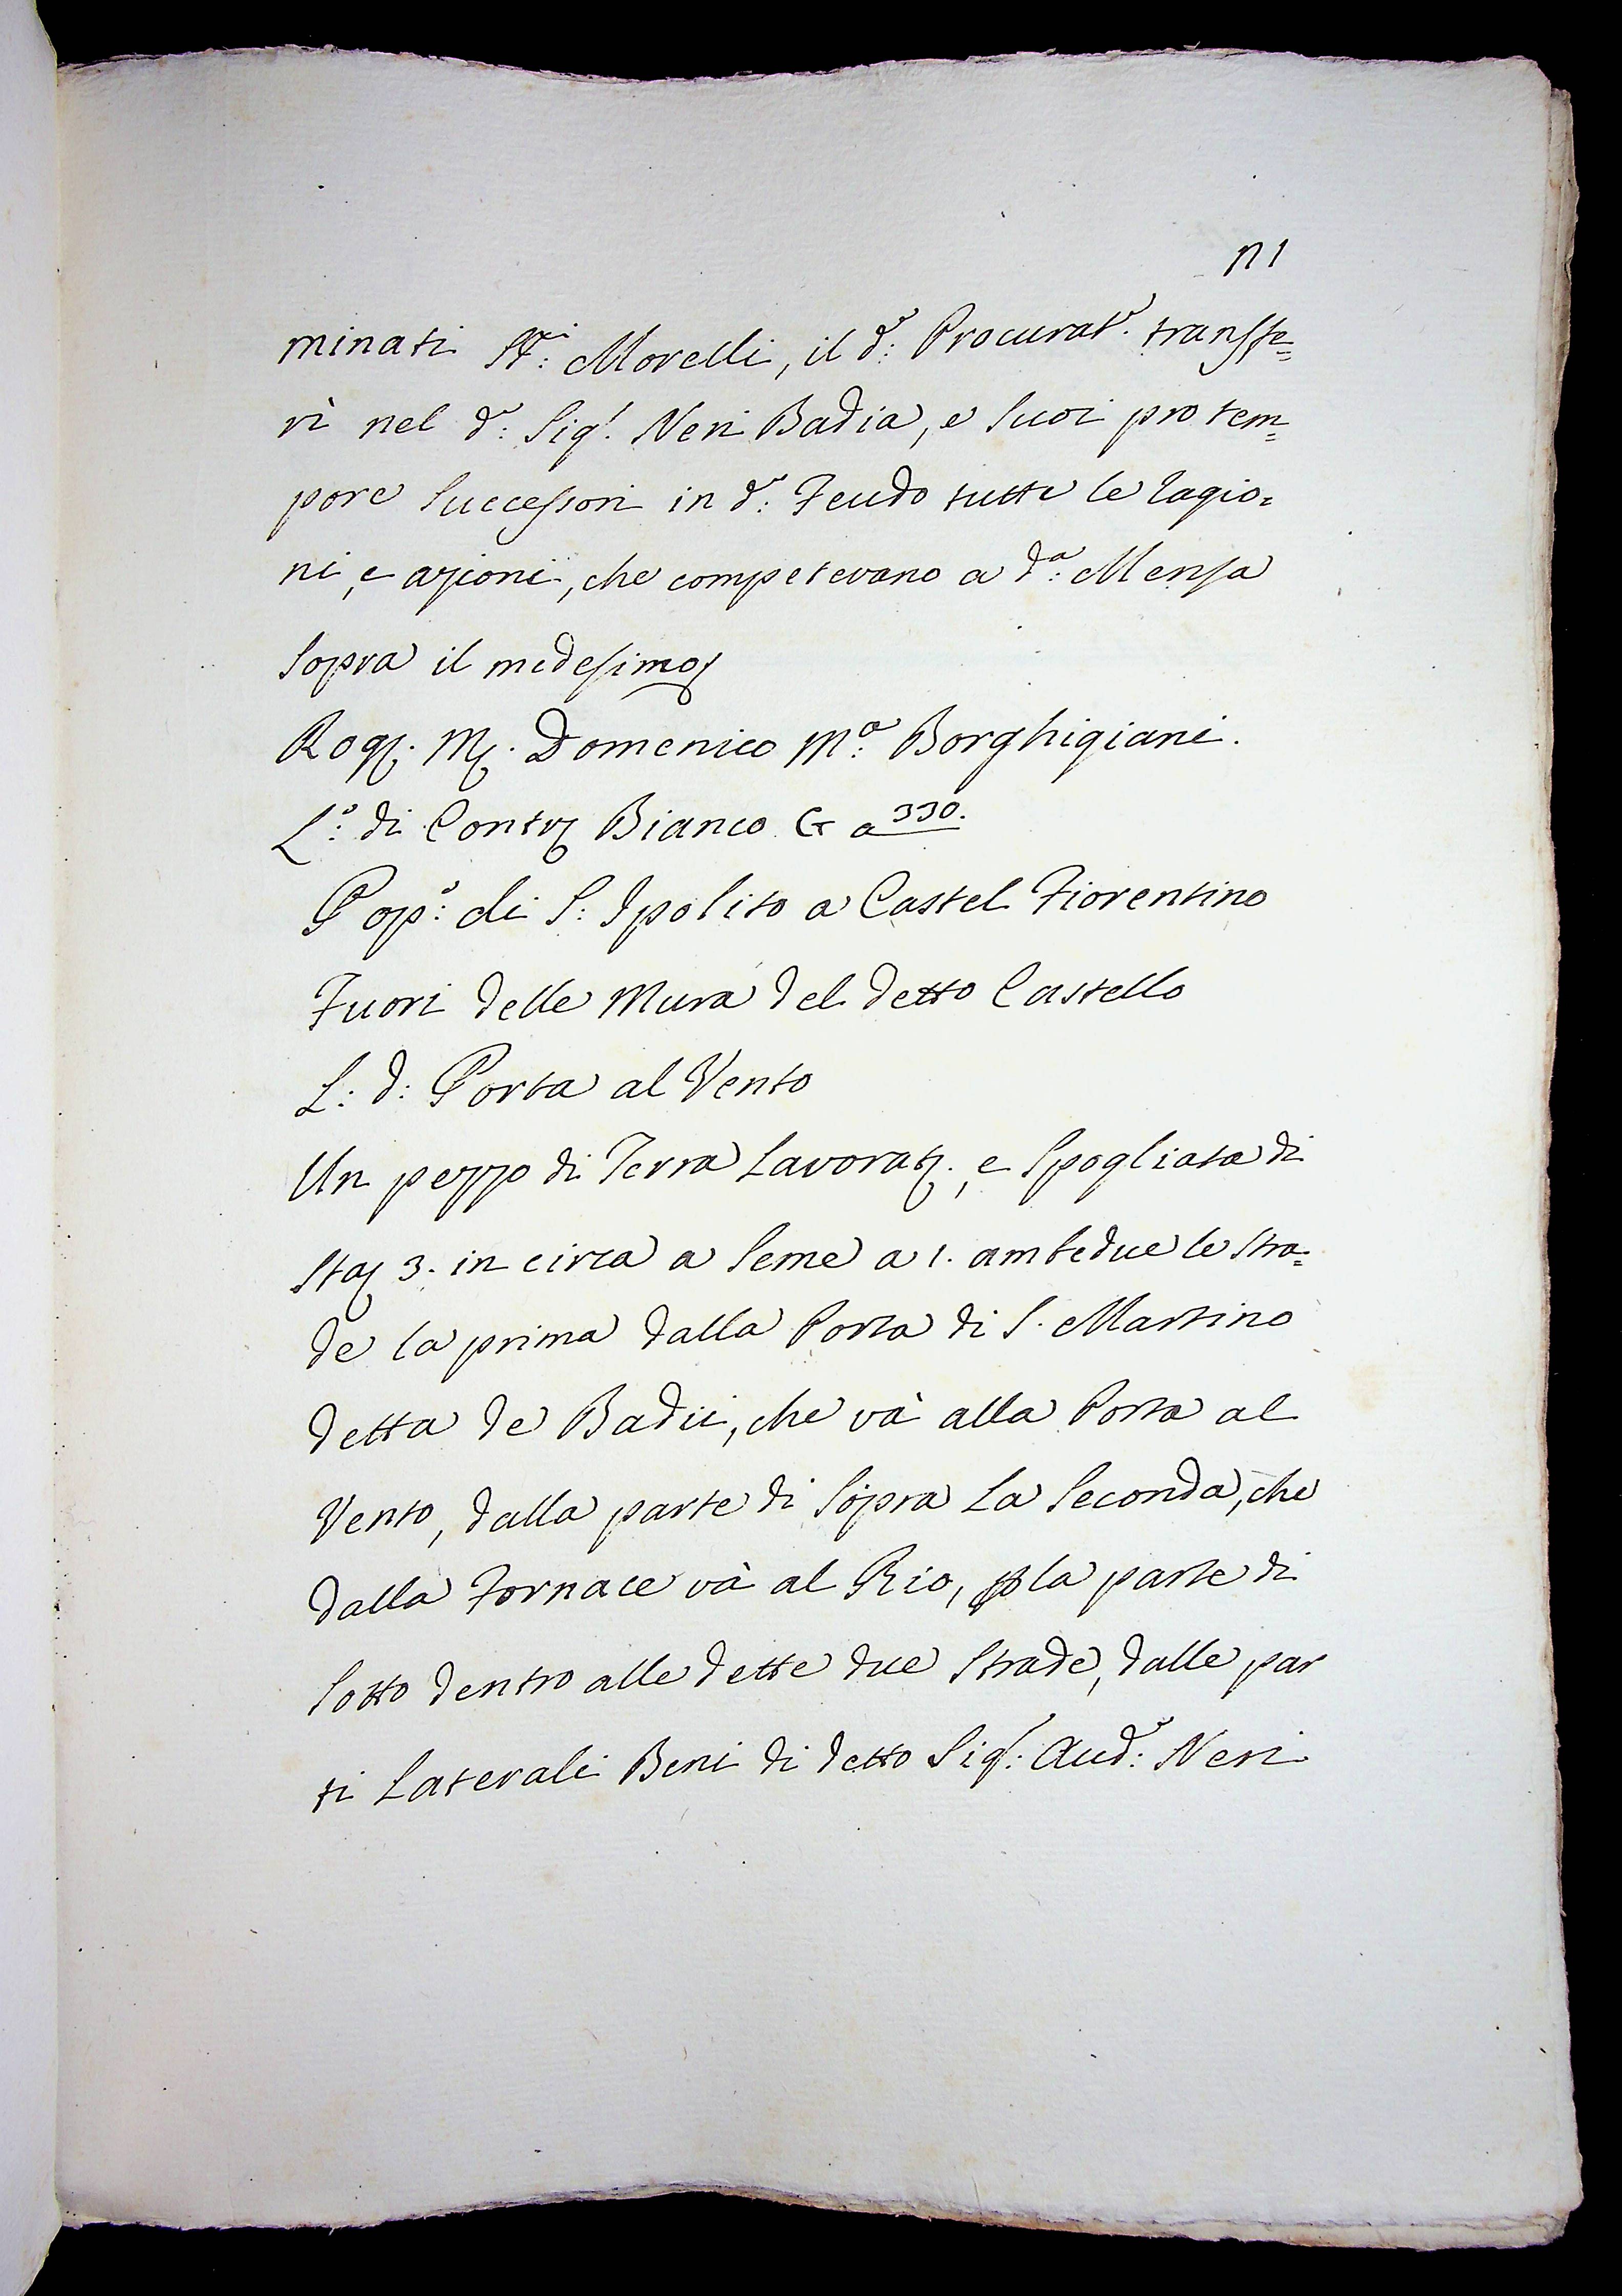 minati SSri: Morelli, il do: Procurato. transfe=
rì nel do: Sigr. Neri Badia, e Suoi pro tem=
pore Successori in do: Feudo tutte le ragio=
ni, e azioni, che competevano a da: Mensa
Sopra il medesimo
Rog. M. Domenico Ma: Borghigiani.
Lo: di Contr. Bianco G a 330.
Popo: di S: Ipolito a Castel Fiorentino
Fuori delle Mura del detto Castello
L: d: Porta al Vento
Un pezzo di Terra Lavorat., e Spogliata di
Sta 3. in circa a Seme a 1. ambedue le Stra=
de la prima dalla Porta di S. Martino
detta de Badii, che và alla Porta al
Vento, dalla parte di Sopra La Seconda, che
dalla Fornace và al Rio, p la parte di
Sotto dentro alle dette due Strade, dalle par
ti Laterali Beni di detto Sigr: Audo: Neri